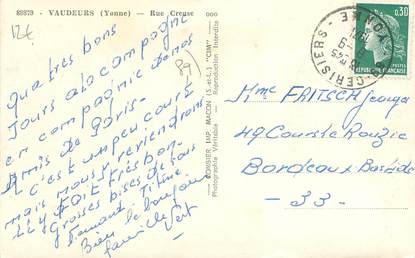 89879 - VAUDEURS (Yonne) - Rue Creuse
12€
89
Quatres bons
Jours a la campagne
en compagnie de nos
Amis de Paris.
c'est un peu court
mais nous y reviendrons
il y fait très bon.
Grosses bises de tous
Bien le bonjour
famille
COMBIER IMP. MACON (S.-et-L.) "CIM"
Photographie Véritable - Reproduction Interdite
CERISIERS
YONNE
0,30
POSTES
REPUBLIQUE FRANÇAISE
Mme FRITSCH
49 Cours
Bordeaux Bastide
- 33 -